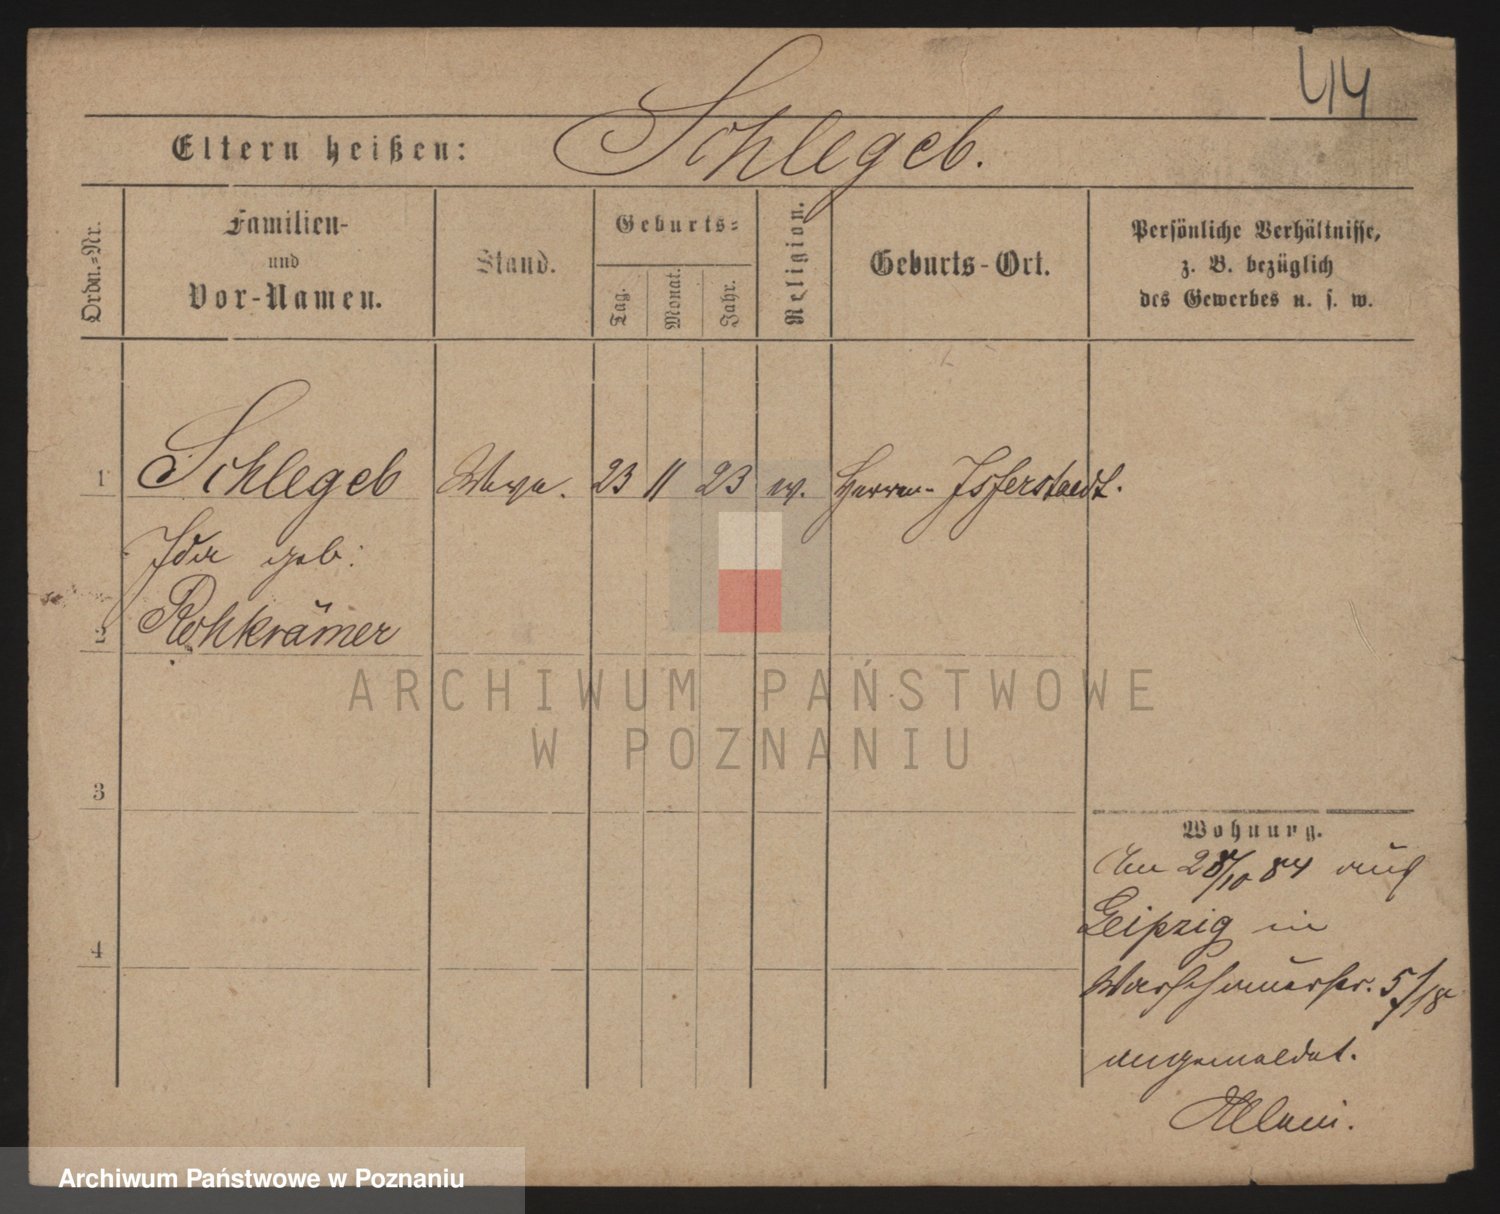 44
Eltern heißen: Schlegeb.
Ordn.-Nr.
Familien-
und
Vor-Namen.
Stand.
Geburts-
Tag.
Monat.
Jahr.
Religion.
Geburts-Ort.
Persönliche Verhältnisse,
z. B. bezüglich
des Gewerbes u. s. w.
1 Schlegeb Wwe. 23 11 23 ev. Herren-Isserstaedt.
Ida geb:
2 Rohkrämer
ARCHIWUM PAŃSTWOWE
W POZNANIU
3
Wohnung.
Am 28/10 84 auf
Leipzig in
4
Warschauerstr. 5/18
angemeldet.
Archiwum Państwowe w Poznaniu